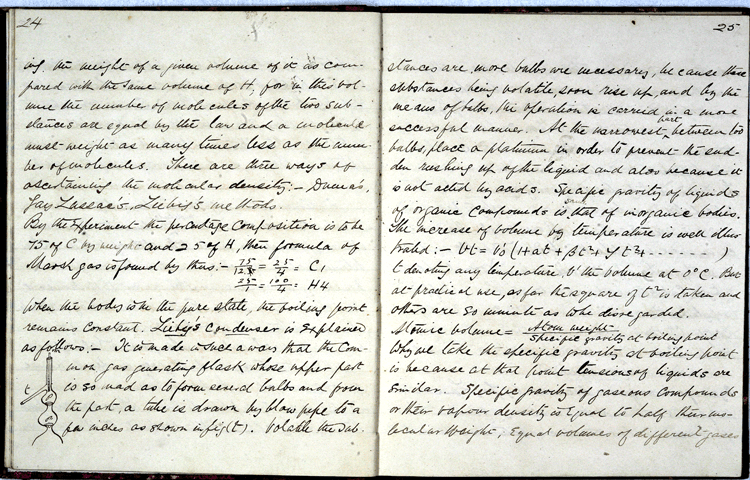 24
ing the weight of a given volume of it as com-
pared with the same volume of H, for in this vol-
ume the number of molecules of the two sub-
stances are equal by the law and a molecule
must weight as many times less as the num-
ber of molecules. There are three ways of
ascertaining the molecular density:- Dumas,
Gay Lussac's, Liebig's methods.
By the Experiment the percentage composition is to be
75 of C by weight and 25 of H, then formula of
Marsh gas is found by thus:- 75/12 = 25/4 = C1
25/1 = 100/4 = H4
When the body is in the pure state, the boiling point
remains constant. Liebig's Condenser is explained
as follows:- It is made in such a ways that the Com-
mon gas generating flask whose upper part
is so mad as to form several bulbs and from
the part, a tube is drawn by blow pipe to a
few inches as shown in fig (t). Volatile the sub-
t
25
stances are, more balbs are necessary, be cause these
substances being volatile, soon rise up, and by the
means of bulbs, the operation is carried in a more
successful manner. At the narrowest part between two
balbs, place a platinum in order to prevent the sud-
den rushing up of the liquid and also because it
is not acted by acids. Specific gravity of liquids
of organic compounds is that of inorganic bodies.
The increase of volume by temperature is well illus-
trated:- Vt = V0 (1+at+βt²+γt³+ - - - - - - )
t denoting any temperature V the volume at 0° C. But
at practical use, as far the square of t² is taken and
others are so minute as to be disregarded.
Atomic volume = Atom weight
Specific gravity at boiling point
Why we take the specific gravity at boiling point
is because at that point tensions of liquids are
similar. Specific gravity of gaseous Compounds
or their vapour density is Equal to half their mo-
lecular Weight, Equal volumes of different gases